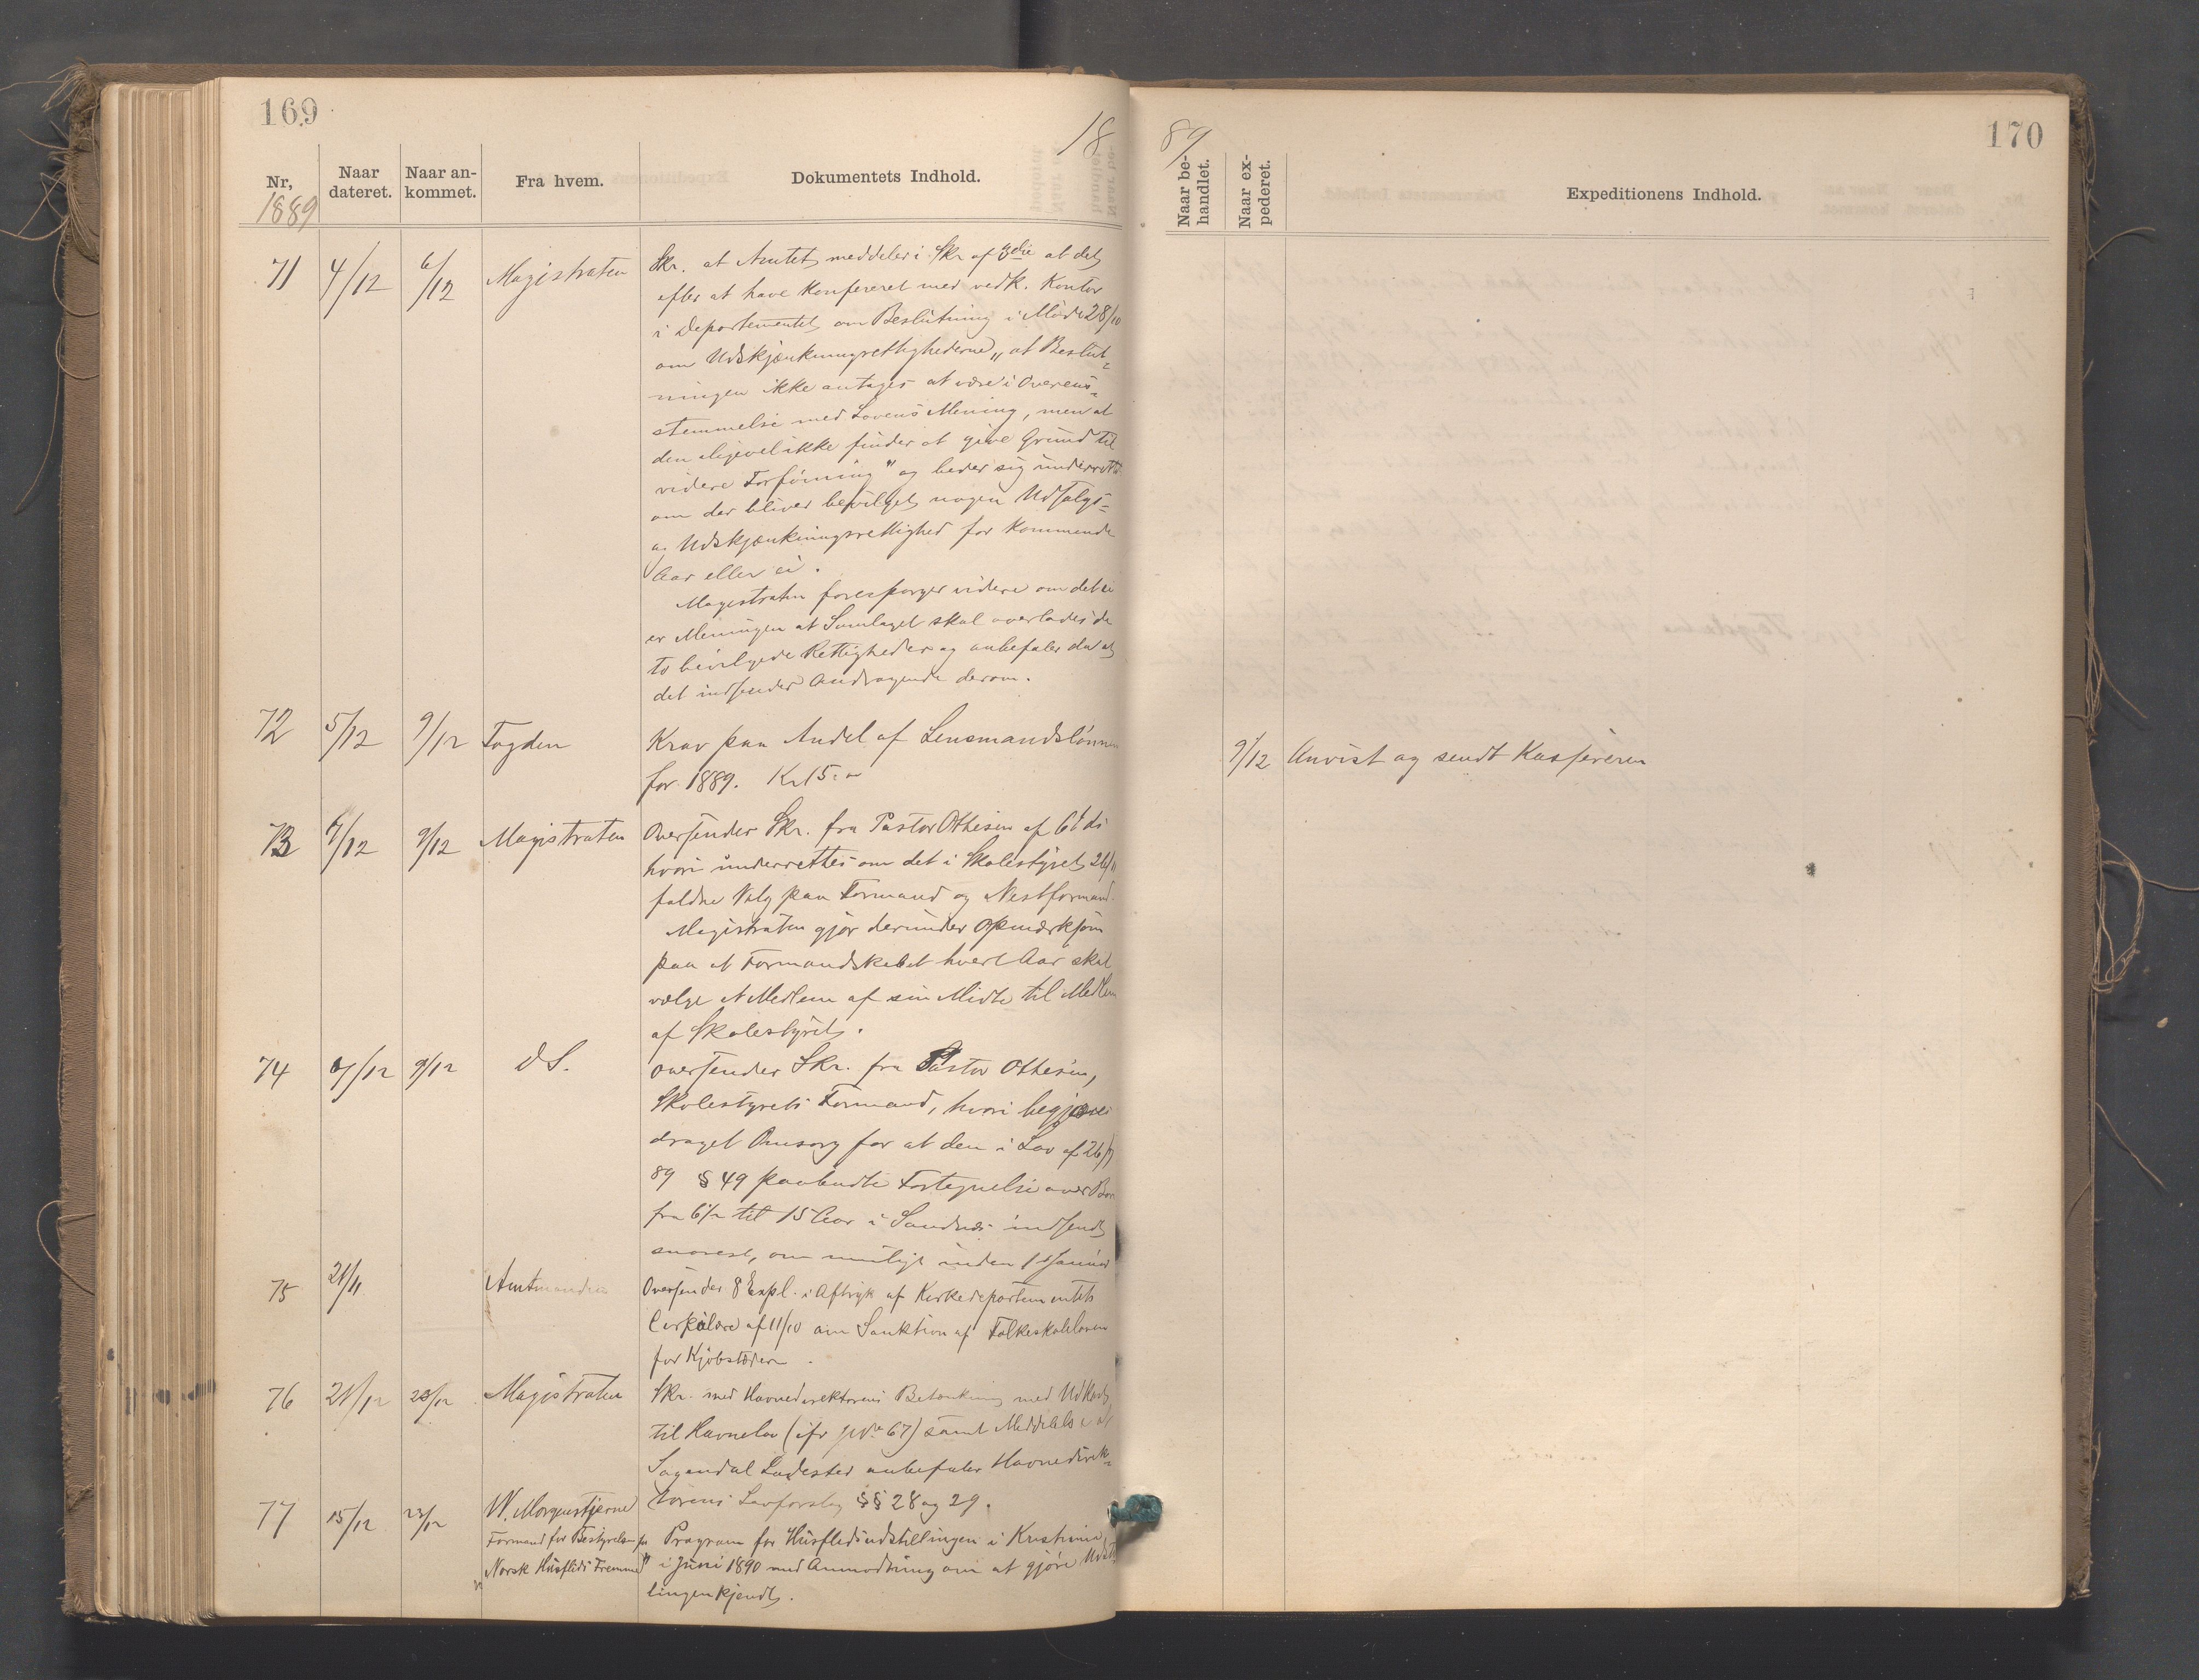 169
18
Nr,
1889
Naar dateret.
Naar ankommet.
Fra hvem.
Dokumentets Indhold.
71 4/12 6/12 Magistraten
Skr. at Amtet meddeler i Skr af 3die at det
efter at have konfereret med vedk. Kontor
i Departementet om Beslutning i Møde 28/10
om Udskjænkningsrettighederne „at Beslut-
ningen ikke antages at være i Overens-
stemmelse med Lovens Mening, men at
den aligevel ikke finder at give Grund til
videre Forføining" og beder sig underrettet
om der bliver bevilget nogen Udsalgs-
og Udskjænkningsrettighed for kommende
Aar eller ei.
Magistraten forespørger videre om det ei
er Meningen at Samlaget skal overlades de
to bevilgede Rettigheder og anbefaler da at
det indsender Andragende derom.
72 5/12 9/12 Fogden
Krav paa Andel af Lensmandslønnen
for 1889. Kr 15.
73 7/12 9/12 Magistraten
Oversender Skr. fra Pastor Othesen af 6t ds
hvori underrettes om det i Skolestyret 26/11
faldne Valg paa Formand og Nestformand.
Magistraten gjør derunder opmærksom
paa at Formandskabet hvert Aar skal
vælge et Medlem af sin Midte til Medlem
af Skolestyret.
74 7/12 9/12 d S.
oversender Skr. fra Pastor Othesen,
Skolestyrets Formand, hvori begjæres
draget Omsorg for at den i Lov af 26/
89 § 49 paabudte Fortegnelse over Børn
fra 6½ til 15 Aar i Sandnes indsendt
snarest, om muligt inden 1st Januar
75 21/11 Amtmanden
Oversender 8 Expl. i Aftryk af Kirkedepartementets
Cirkulære af 11/10 om Sanktion af Folkeskoleloven
for Kjøbstæderne.
76 21/12 23/12 Magistraten
Skr. med Havnedirektørens Betænkning med Udkast
til Havnelov (jfr No 67) samt Meddelelse at
Sogndal Ladested anbefaler Havnedirek-
tørens Lovforslag §§ 28 og 29.
77 15/12 23/12 W. Morgenstjerne
Formand for Bestyrelsen for
„Norsk Husflids Fremme"
Program for Husflidsudstillingen i Kristiania
i Juni 1890 med Anmodning om at gjøre Udstil
lingen kjendt.
89
170
Naar behandlet.
Naar expederet.
Expeditionens Indhold.
9/12 Anvist og sendt Kassereren